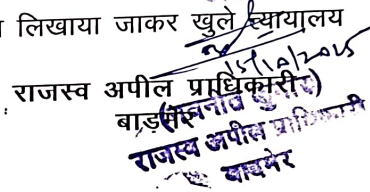 लिखाया जाकर खुले न्यायालय
15/10/2025
राजस्व अपील प्राधिकारी
बाड़मेर
राजस्व अपील प्राधिकारी
बाडमेर